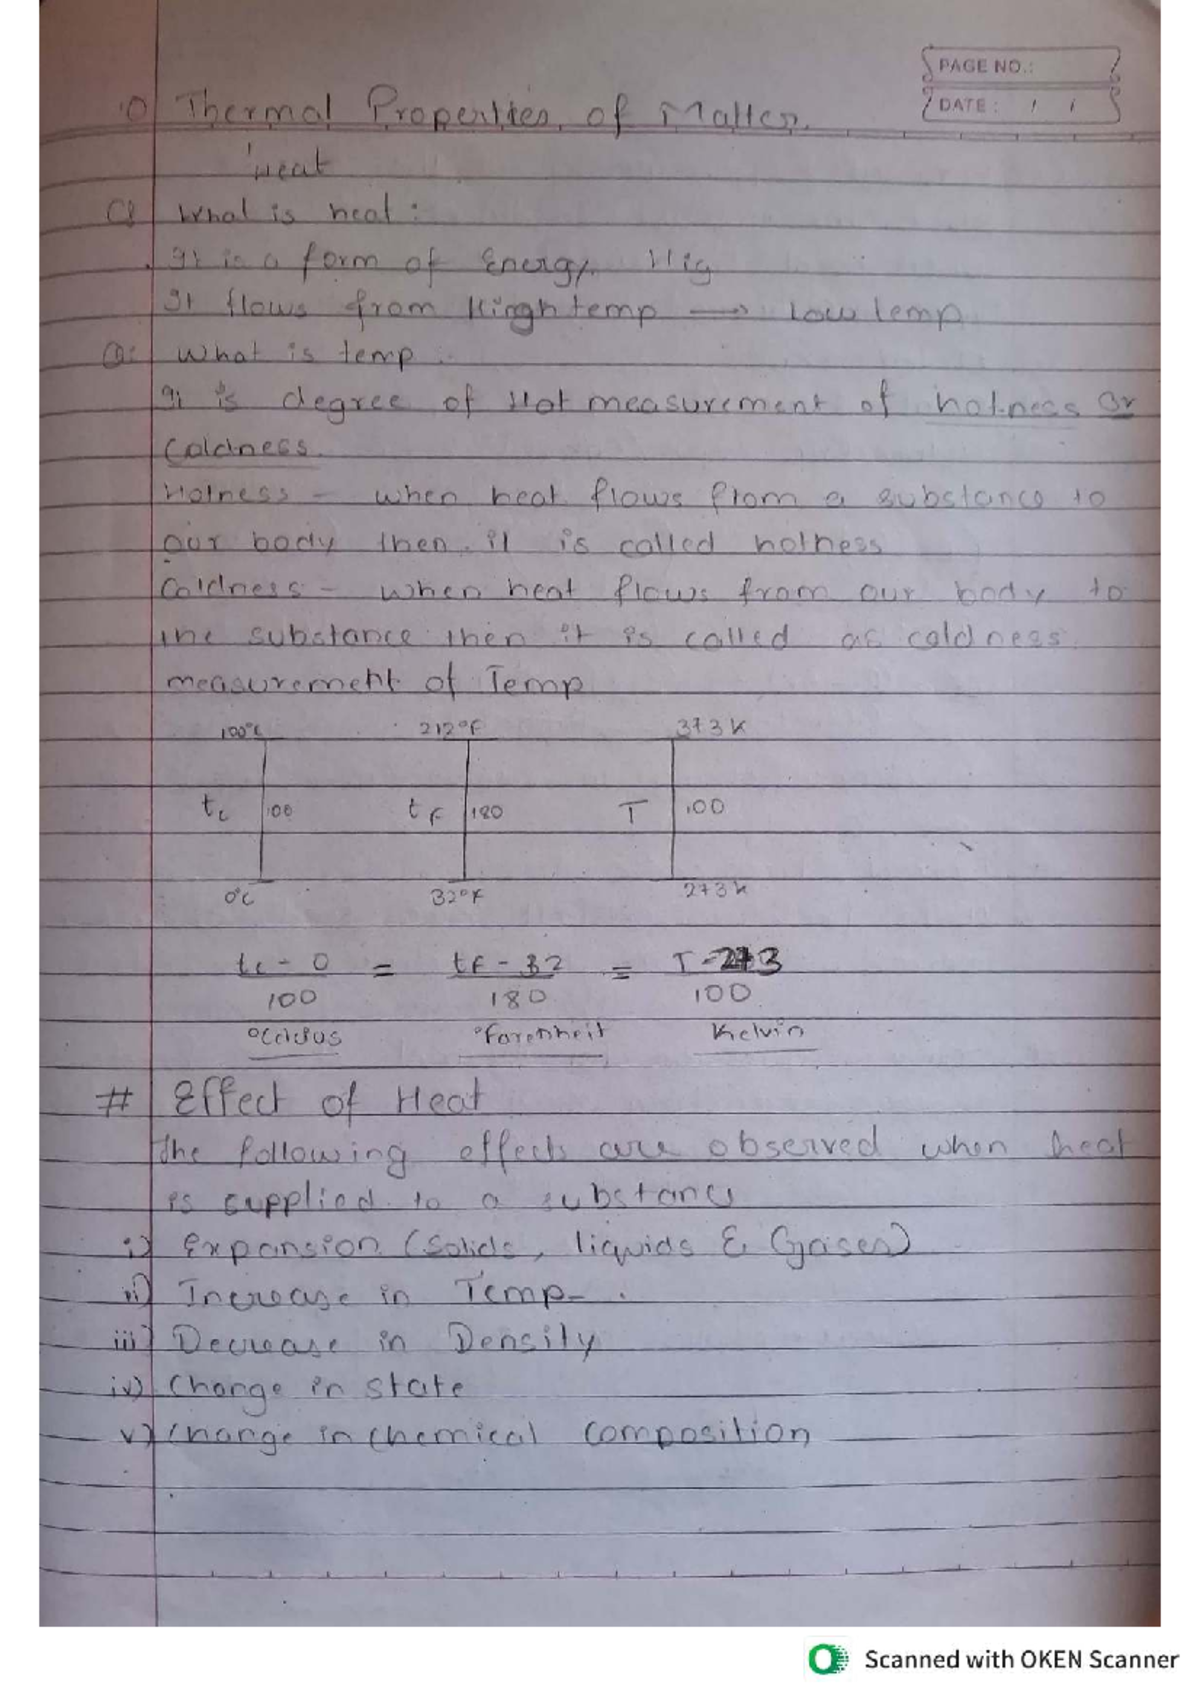 PAGE NO.:
DATE: / /
Thermal Properties of Matter.
Heat
Q What is heat:
It is a form of Energy. Hig
It flows from Hirgh temp → Low temp
Q: What is temp.
It is degree of Hot measurement of hotness or
Coldness.
Hotness - when heat flows from a substance to
our body then it is called hotness
Coldness - when heat flows from our body to
the substance then it is called as coldness
measurement of Temp
100°C 212°F 373 K
tc 100 tF 180 T 100
0°C 32°F 273 K
tc - 0 = tF - 32 = T - 273
100 180 100
°Celsius °Farenheit Kelvin
# Effect of Heat
The following effects are observed when heat
is supplied to a substance
i) Expansion (Solids, liquids & Gases)
ii) Increase in Temp.
iii) Decrease in Density
iv) Change in state
v) Change in Chemical Composition
Scanned with OKEN Scanner